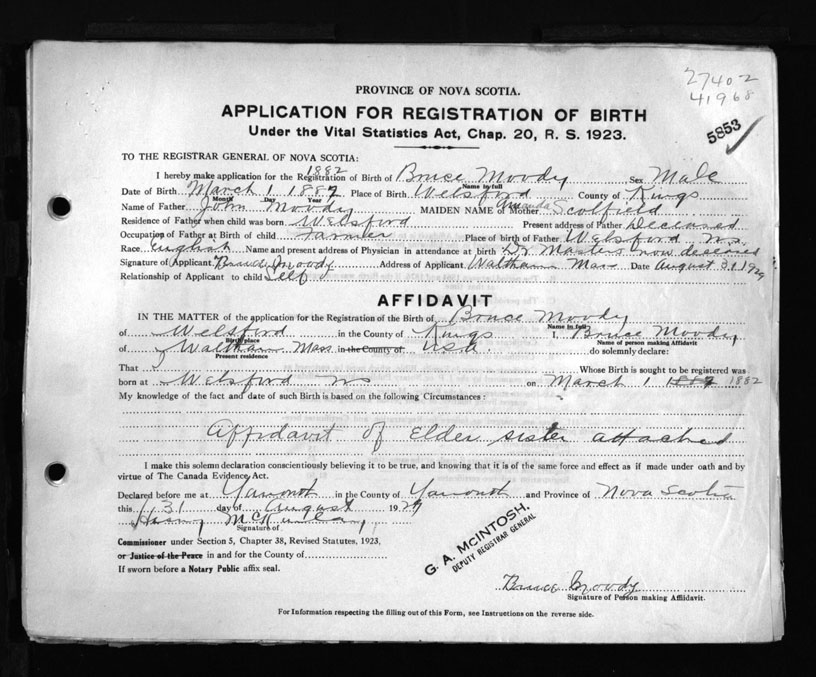 27402
41968
5853
PROVINCE OF NOVA SCOTIA.
APPLICATION FOR REGISTRATION OF BIRTH
Under the Vital Statistics Act, Chap. 20, R. S. 1923.
TO THE REGISTRAR GENERAL OF NOVA SCOTIA:
1882
I hereby make application for the Registration of Birth of Bruce Moody Sex Male
Name in full
Date of Birth March 1 1882 Place of Birth Welsford County of Kings
Month Day Year
Name of Father John Moody MAIDEN NAME of Mother Amanda Scolfield
Residence of Father when child was born Welsford Present address of Father Deceased
Occupation of Father at Birth of child Farmer Place of birth of Father Welsford N.S.
Race English Name and present address of Physician in attendance at birth Dr Masters now deceased
Signature of Applicant Bruce Moody Address of Applicant Waltham Mass Date August 31 1929
Relationship of Applicant to child Self
AFFIDAVIT
IN THE MATTER of the application for the Registration of the Birth of Bruce Moody
Name in full
of Welsford in the County of Kings I, Bruce Moody
Birth place Name of person making Affidavit
of Waltham Mass in the County of USA do solemnly declare:
Present residence
That Whose Birth is sought to be registered was
born at Welsford NS on March 1 1882
My knowledge of the fact and date of such Birth is based on the following Circumstances:
Affidavit of Elder sister attached
I make this solemn declaration conscientiously believing it to be true, and knowing that it is of the same force and effect as if made under oath and by
virtue of The Canada Evidence Act.
Declared before me at Yarmouth in the County of Yarmouth and Province of Nova Scotia
this 31 day of August 1929
Signature of
Commissioner under Section 5, Chapter 38, Revised Statutes, 1923,
or Justice of the Peace in and for the County of
If sworn before a Notary Public affix seal.
G. A. McINTOSH,
DEPUTY REGISTRAR GENERAL
Bruce Moody
Signature of Person making Affidavit.
For Information respecting the filling out of this Form, see Instructions on the reverse side.